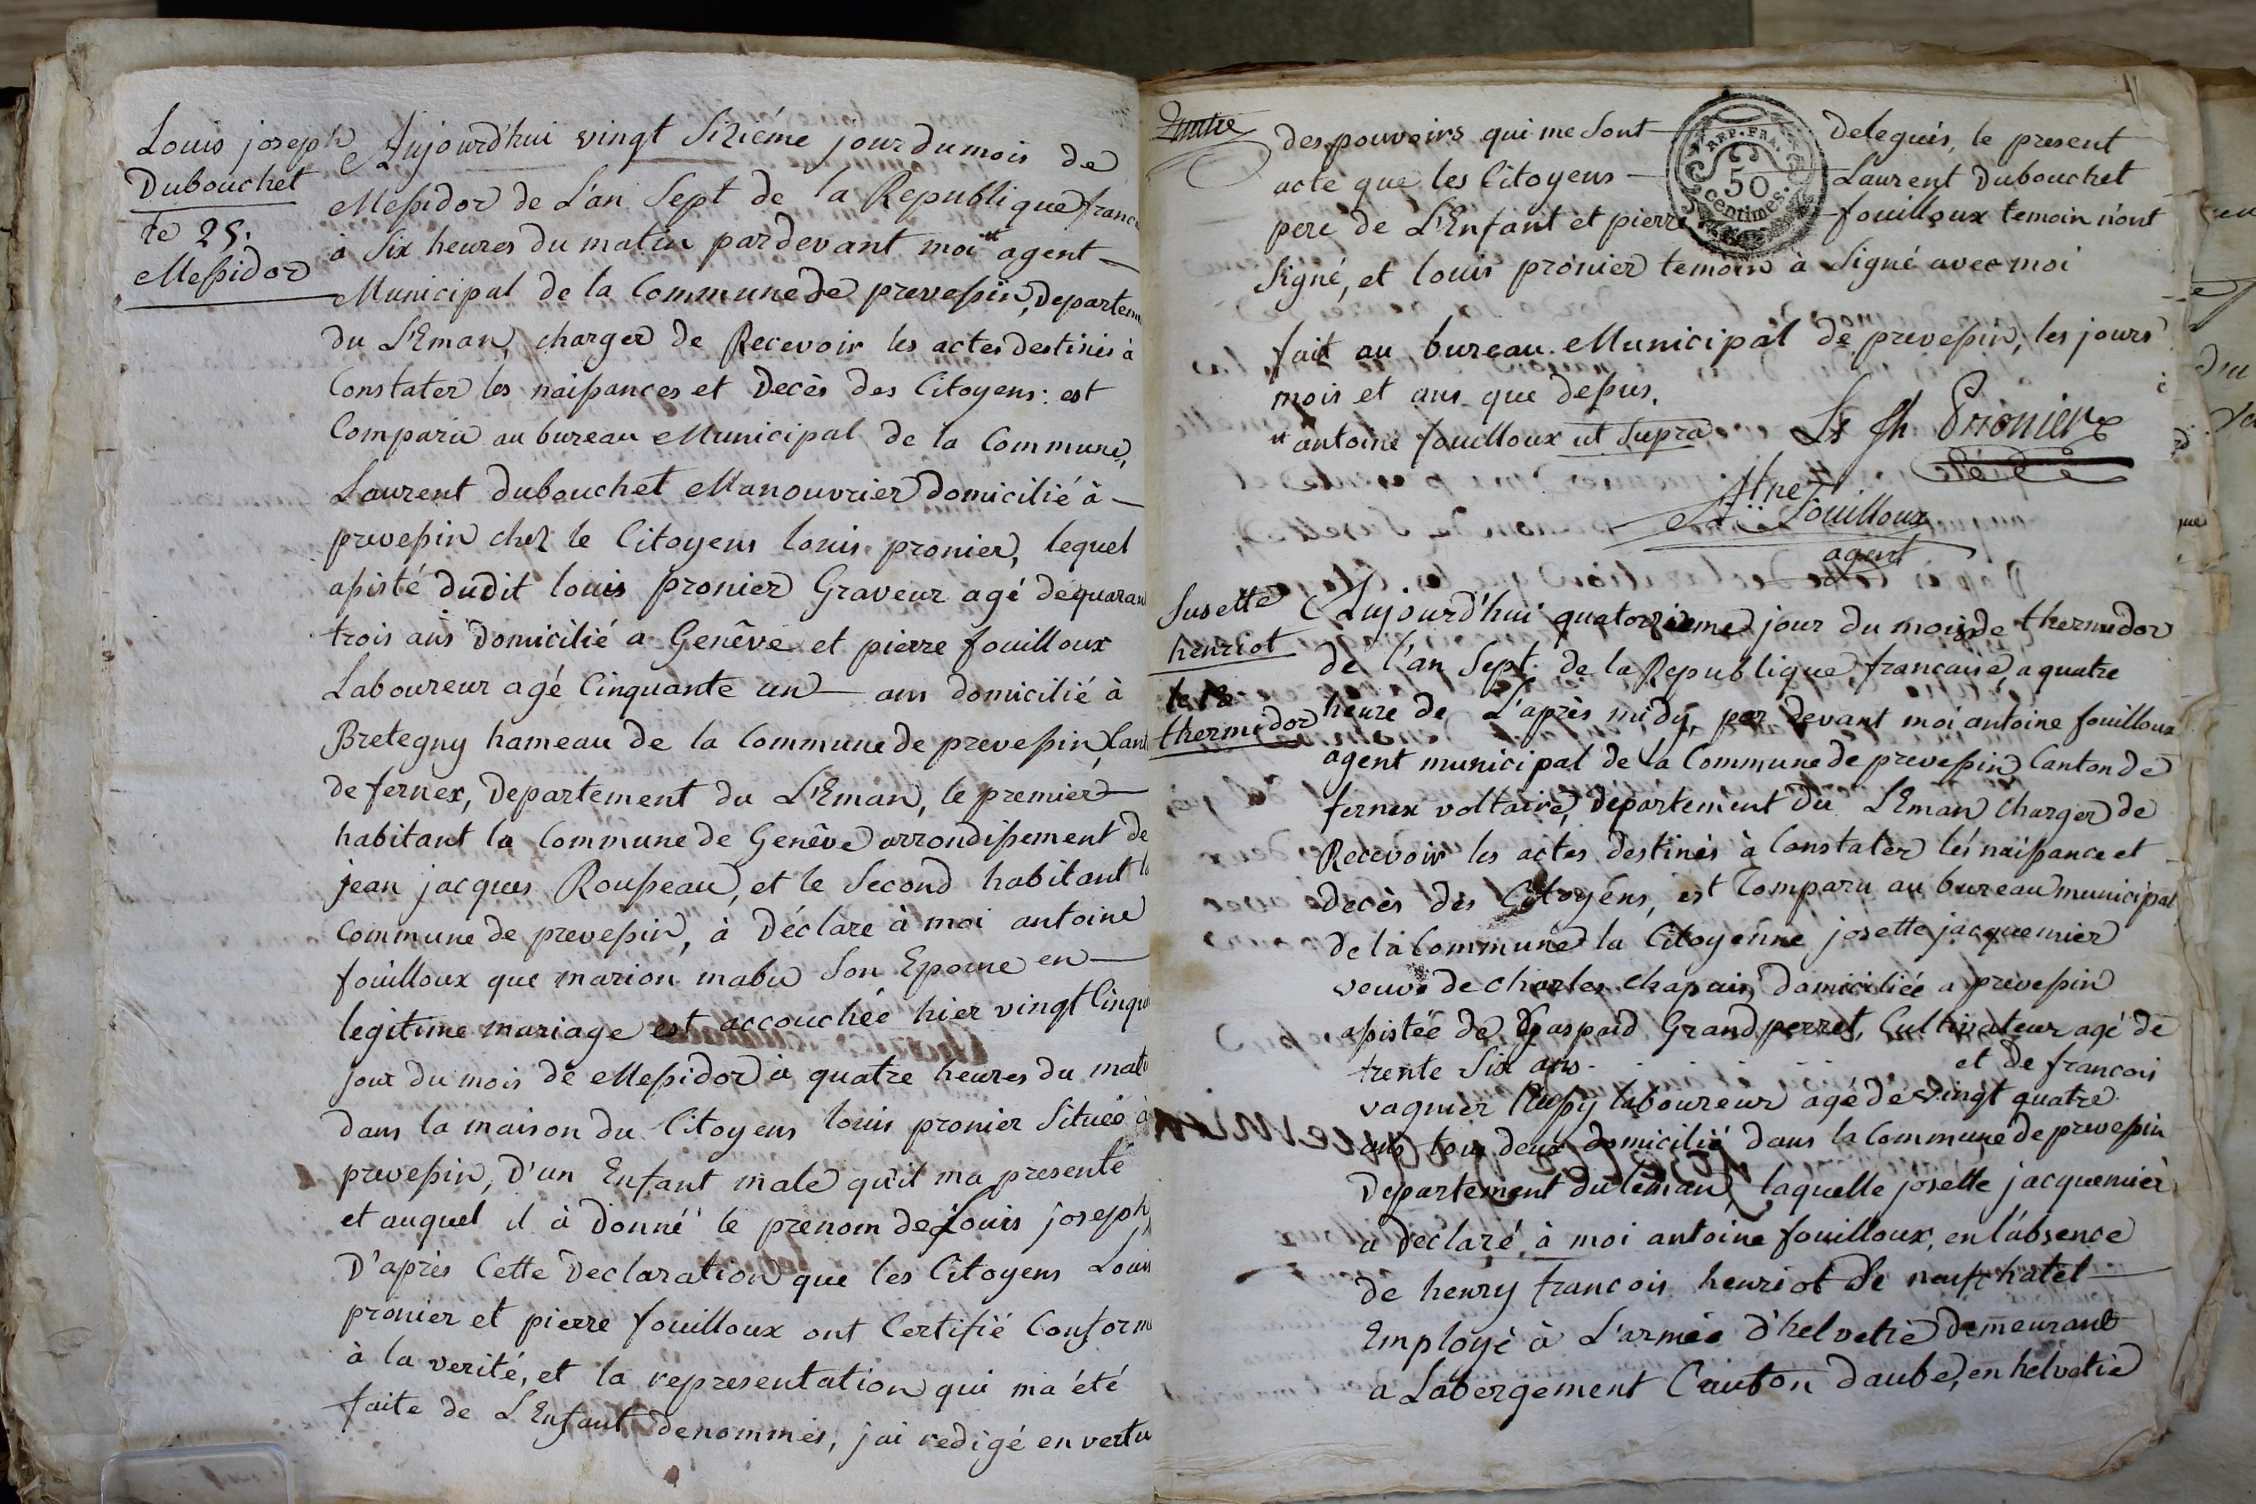 Louis joseph
Dubouchet
le 25.
Messidor
Aujourd'hui vingt Sixiéme jour du mois de
Messidor de L'an Sept de la Republique franc
à Six heures du matin pardevant moi agent
Municipal de la Commune de prevessin, Departem
du L'Eman, charger de Recevoir les actes destinés à
Constater les naissances et Decès des Citoyens: est
Comparu au bureau Municipal de la Commune,
Laurent dubouchet Manouvrier domicilié à
prevessin chez le Citoyens louis pronier, lequel
assisté dudit louis pronier Graveur agé de quaran
trois ans domicilié a Genêve et pierre fouilloux
Laboureur agé Cinquante un ans domicilié à
Bretegny hameau de la Commune de prevessin, Cant
de fernex, Departement du L'Eman, le premier
habitant la Commune de Genêve arrondissement de
jean jacques Rousseau, et le Second habitant la
Commune de prevessin, à Déclare à moi antoine
fouilloux que marion mabu Son Epouse en
legitime mariage est accouchée hier vingt Cinqui
jour du mois de Messidor à quatre heures du mati
dans la maison du Citoyens louis pronier Située à
prevessin, D'un Enfant male qu'il ma presenté
et auquel il à donné le prenom de Louis joseph
D'après Cette Declaration que les Citoyens Louis
pronier et pierre fouilloux ont Certifié Conforme
à la verité, et la representation qui ma été
faite de L'Enfant denommés, j'ai redigé en vertu
des pouvoirs qui me Sont delegués, le present
REP. FRA.
50
centimes.
acte que les Citoyens Laurent Dubouchet
pere de L'Enfant et pierre fouilloux temoin n'ont
Signé, et louis pronier temoin à Signé avec moi
fait au bureau Municipal de prevessin, les jours
mois et ans que dessus.
antoine fouilloux ut Supra Ls Jh Pronier
Atne Fouilloux
agent
Susette
henriot
le 13
thermidor
Aujourd'hui quatorzieme jour du mois de thermidor
de l'an Sept de la Republique francaise, a quatre
heure de L'après midy, par devant moi antoine fouilloux
agent municipal de la Commune de prevessin Canton de
fernex voltaire, departement du L'Eman charger de
Recevoir les actes destinés à Constater les naissance et
decès des Citoyens, est Comparu au bureau municipal
de la Commune la Citoyenne josette jacquemier
veuve de charles chapuis, domiciliée a prevessin
assistée de Gaspard Grandperret, Cultivateur agé de
trente Six ans et de francois
vagnier laboureur agé de vingt quatre
ans tous deux domicilié dans la Commune de prevessin
Departement du leman, laquelle josette jacquemier
a declaré à moi antoine fouilloux, en l'absence
de henry francois henriot de neufchatel
Employé à L'armée d'helvetie demeurant
a Labergement Canton daube, en helvetie